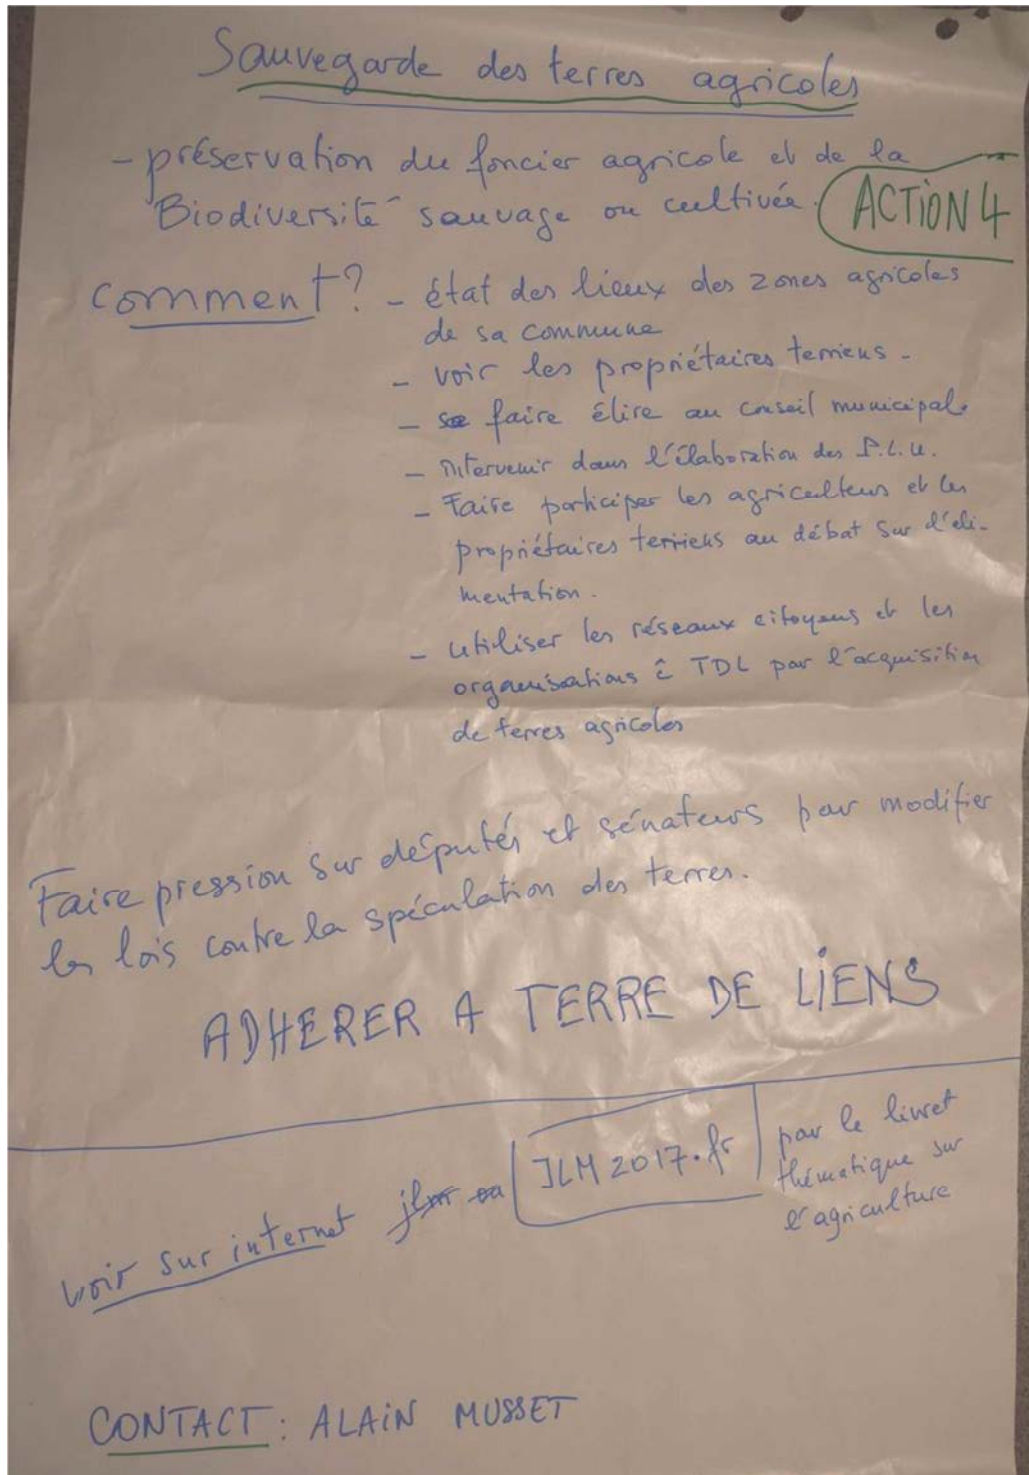 Sauvegarde des terres agricoles
- préservation du foncier agricole et de la
Biodiversité sauvage ou cultivée.
ACTION 4
Comment? - état des lieux des zones agricoles
de sa commune
- voir les propriétaires terriens -
- se faire élire au conseil municipal.
- intervenir dans l'élaboration des P.L.U.
- Faire participer les agriculteurs et les
propriétaires terriens au débat sur l'ali-
mentation.
- utiliser les réseaux citoyens et les
organisations ĉ TDL par l'acquisition
de terres agricoles
Faire pression sur députés et sénateurs pour modifier
les lois contre la spéculation des terres.
ADHERER A TERRE DE LIENS
voir sur internet JLM 2017.fr
par le livret
thématique sur
l'agriculture
CONTACT : ALAIN MUSSET